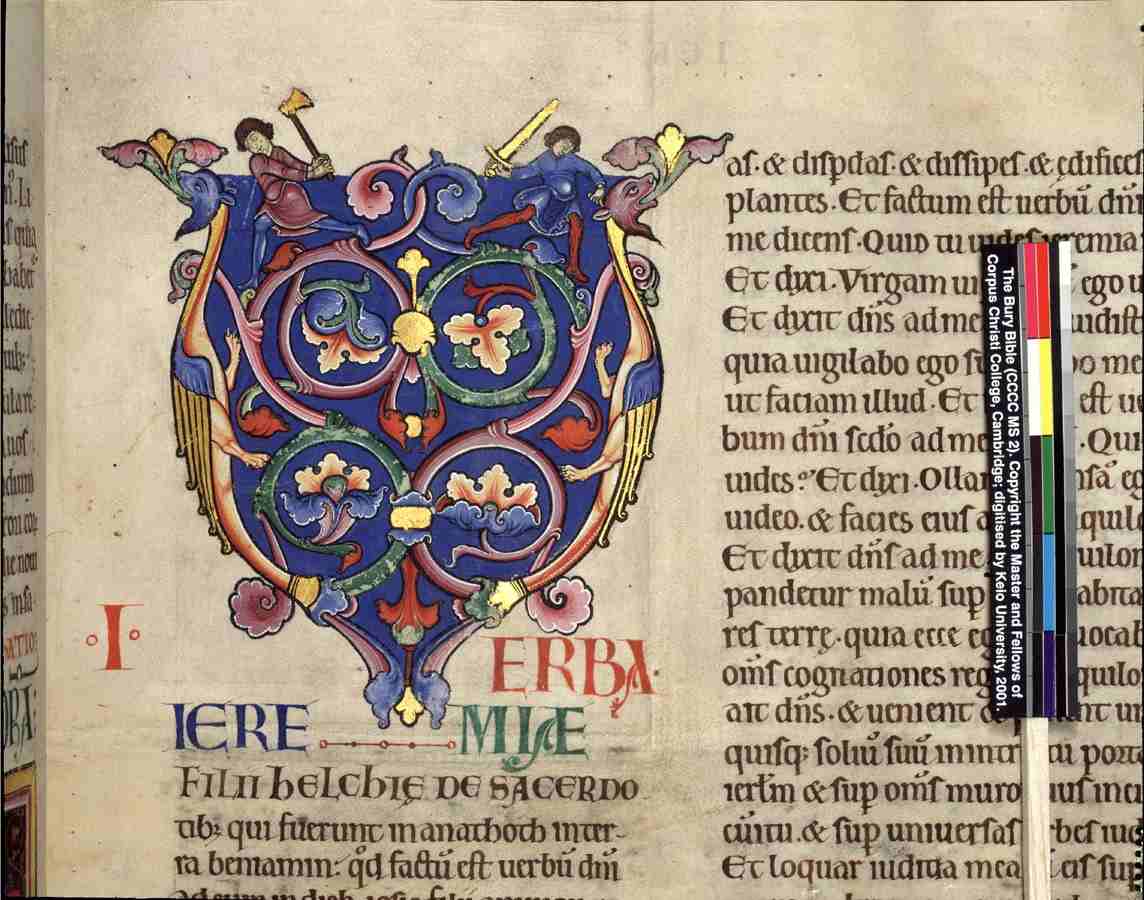 I
VERBA
IEREMIAE
FILII hELChIĘ DE SACERDO
tib; qui fuerunt in anathoth in ter-
ra beniamin: qd̄ factū est uerbū dn̄i
as. & disp̄das. & dissipes. & ędifices
plantes. Et factum est uerbū dn̄i
me dicens. Quid tu uides ieremia
Et dixi. Virgam ui ego u
Et dixit dn̄s ad me uidist
quia uigilabo ego su bo me
ut faciam illud. Et est ue
bum dn̄i scdo ad me . Qui
uides? Et dixi. Ollam nsā eg
uideo. & facies eius a quil
Et dixit dn̄s ad me uilon
pandetur malū sup abita
res terrę. quia ecce eg uocab
om̄s cognationes reg quilo
ait dn̄s. & uenient & nt un
quisq; soliū suū in intr tu porta
ierl̄m & sup om̄s muro ius inci
cūitu. & sup uniuersas rbes iud
Et loquar iudicia mea cū eis sup
The Bury Bible (CCCC MS 2). Copyright the Master and Fellows of
Corpus Christi College, Cambridge; digitised by Keio University, 2001.